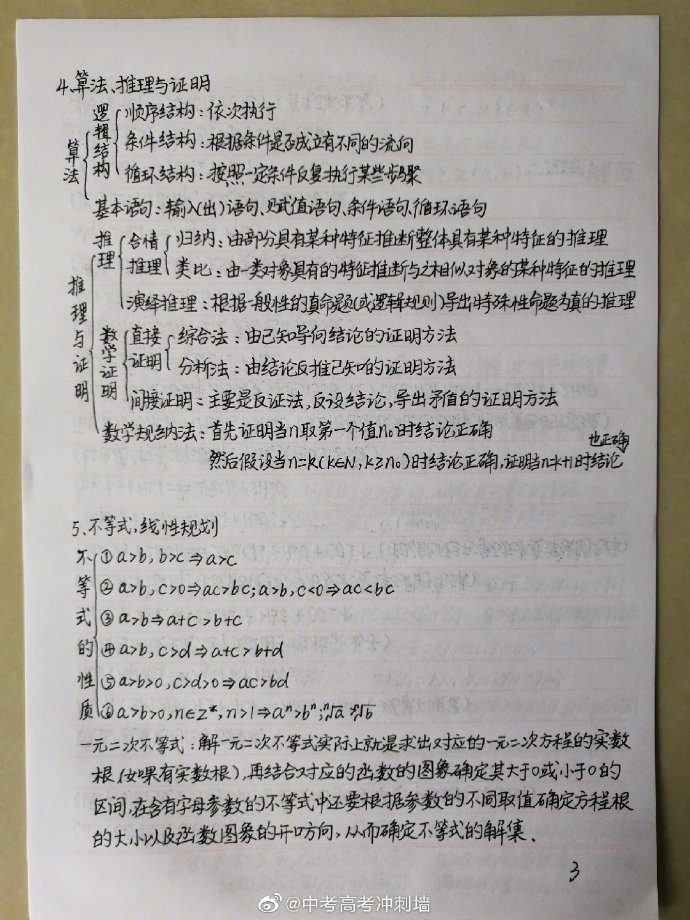 4.算法、推理与证明
算法
逻辑结构
顺序结构:依次执行
条件结构:根据条件是否成立有不同的流向
循环结构:按照一定条件反复执行某些步骤
基本语句:输入(出)语句、赋值语句、条件语句、循环语句
推理与证明
推理
合情推理
归纳:由部分具有某种特征推断整体具有某种特征的推理
类比:由一类对象具有的特征推断与之相似对象的某种特征的推理
演绎推理:根据一般性的真命题(或逻辑规则)导出特殊性命题为真的推理
数学证明
直接证明
综合法:由已知导向结论的证明方法
分析法:由结论反推已知的证明方法
间接证明:主要是反证法,反设结论,导出矛盾的证明方法
数学规纳法:首先证明当n取第一个值n₀时结论正确
然后假设当n=k(k∈N,k≥n₀)时结论正确,证明当n=k+1时结论也正确
5、不等式,线性规划
不等式的性质
①a>b,b>c⇒a>c
②a>b,c>0⇒ac>bc;a>b,c<0⇒ac<bc
③a>b⇒a+c>b+c
④a>b,c>d⇒a+c>b+d
⑤a>b>0,c>d>0⇒ac>bd
⑥a>b>0,n∈Z*,n>1⇒aⁿ>bⁿ;ⁿ√a>ⁿ√b
一元二次不等式:解一元二次不等式实际上就是求出对应的一元二次方程的实数
根(如果有实数根),再结合对应的函数的图象确定其大于0或小于0的
区间,在含有字母参数的不等式中还要根据参数的不同取值确定方程根
的大小以及函数图象的开口方向,从而确定不等式的解集.
3
@中考高考冲刺墙